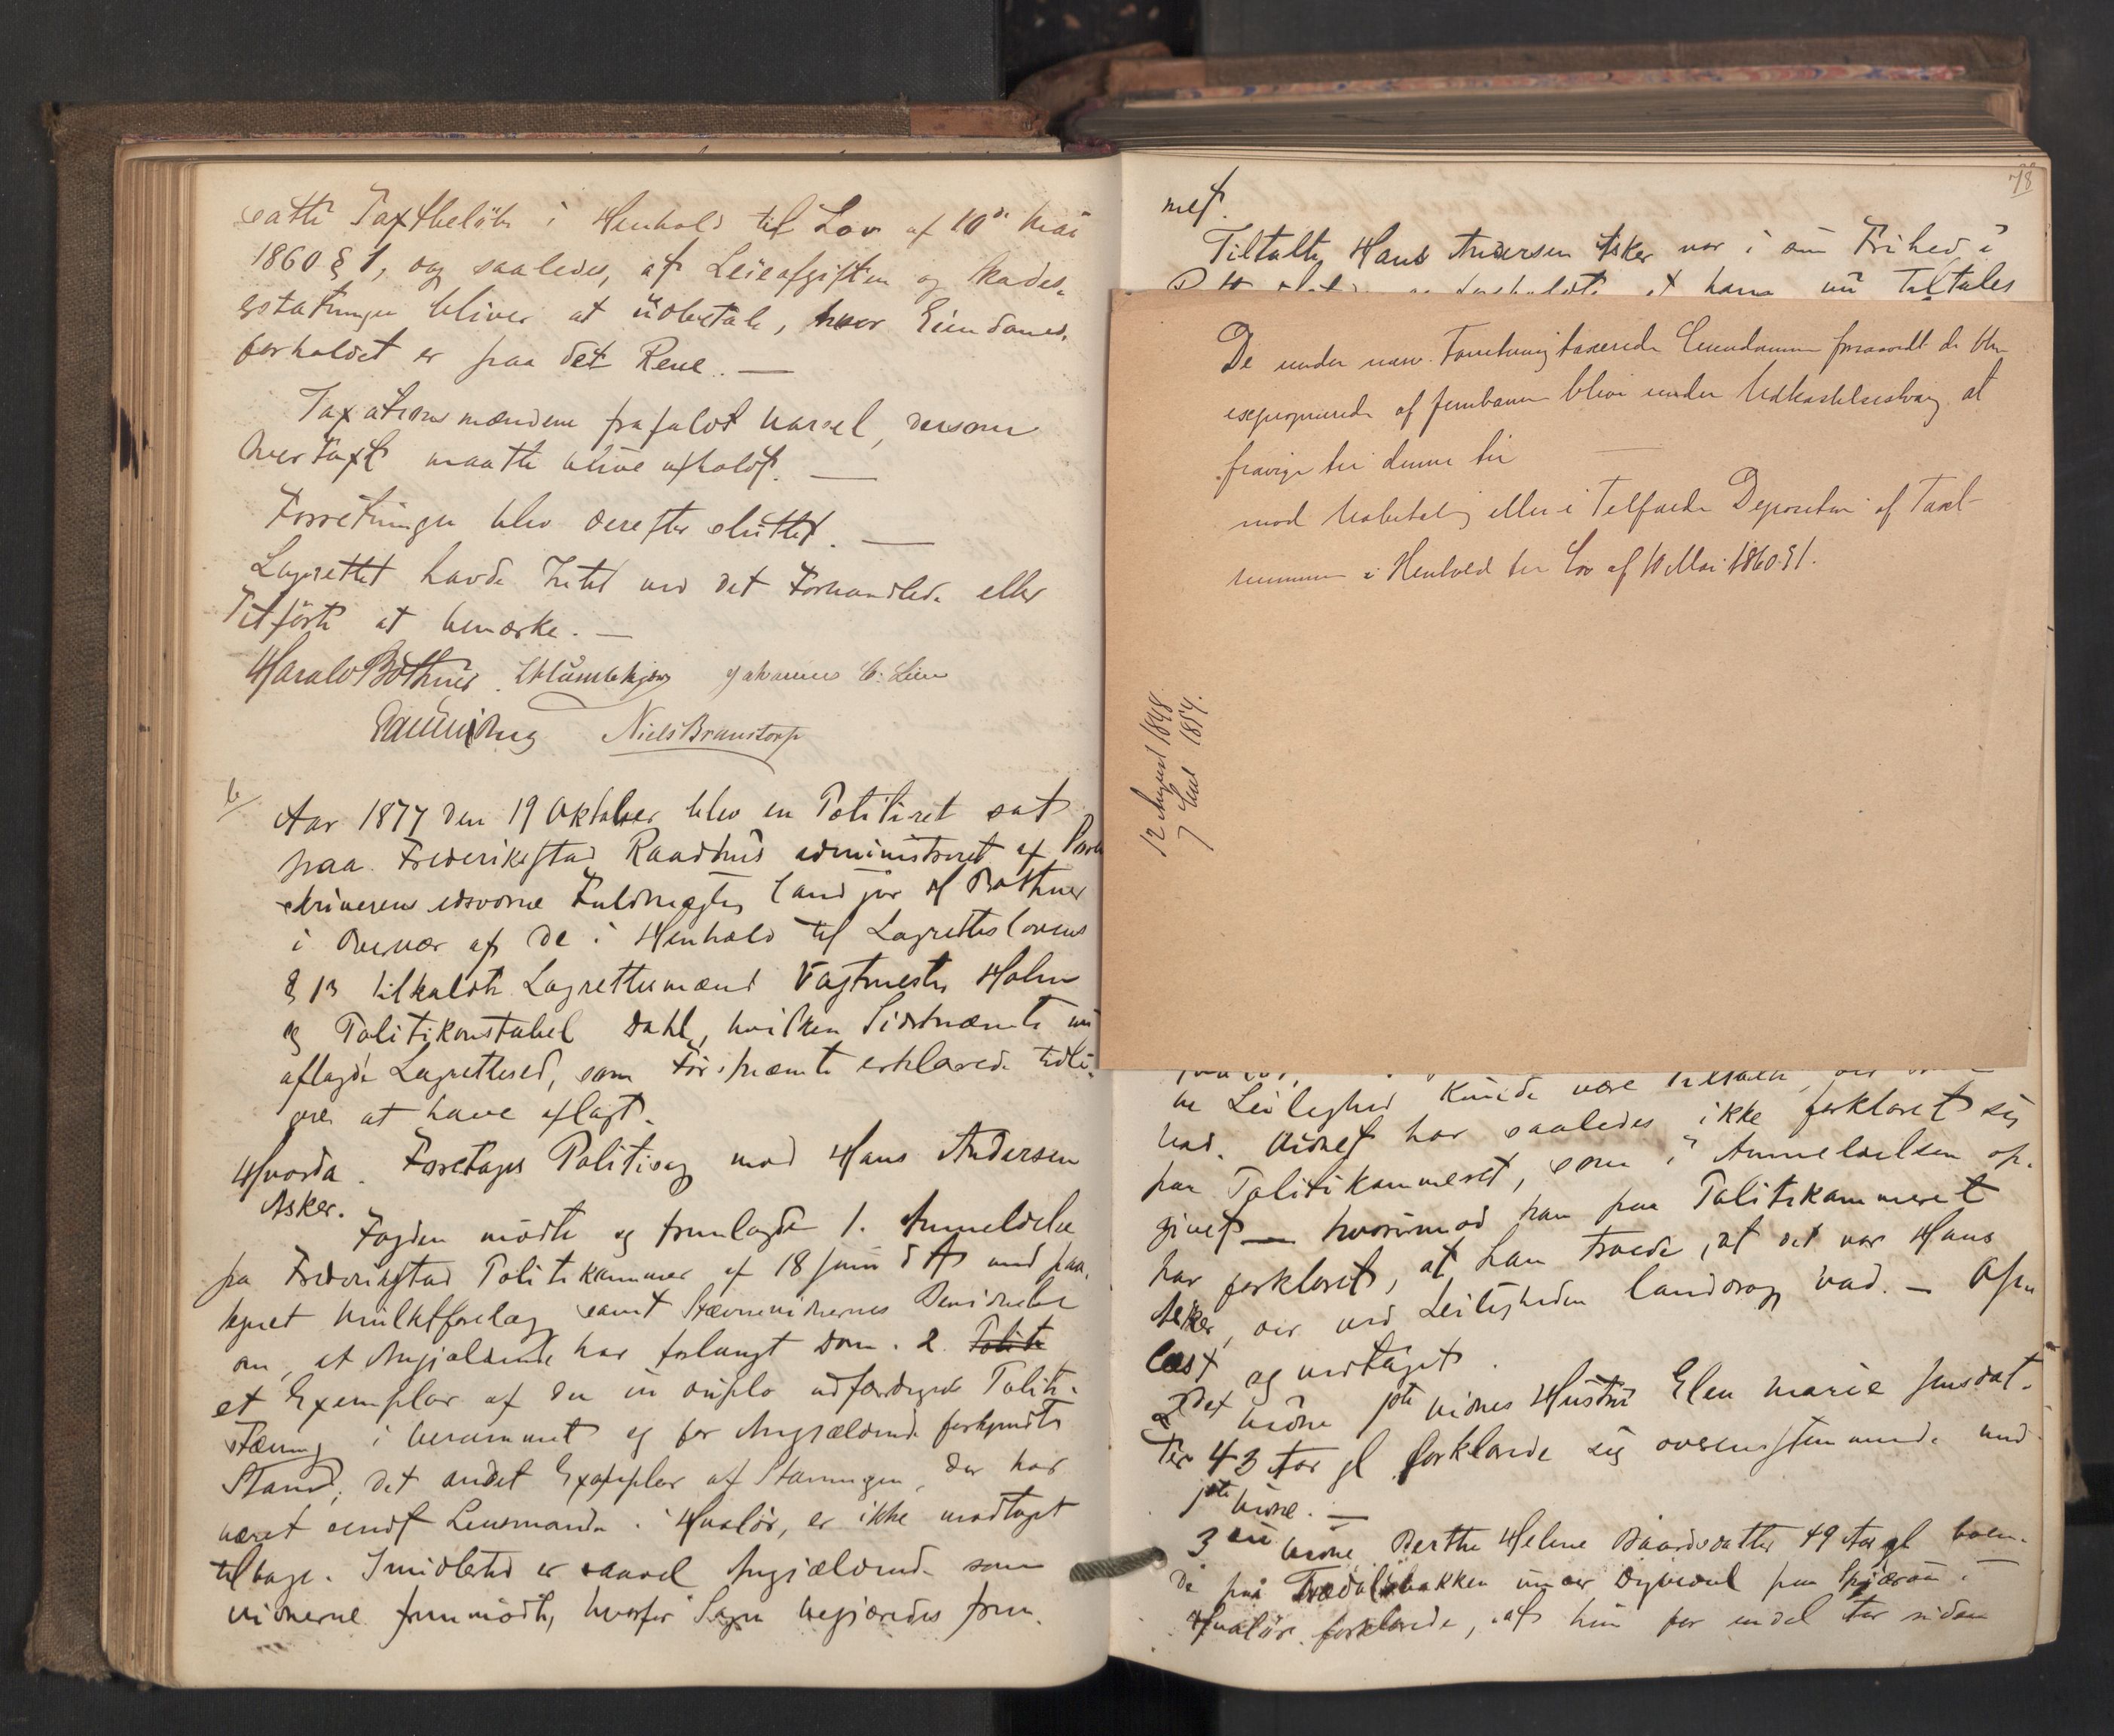 satte Taxtbeløb i Henhold til Lov af 10de Mai
1860 § 1, og saaledes, at Leieafgiften og Skades-
erstatninger bliver at udbetale, hvor Eiendoms-
forholdet er paa det Rene. —
Taxationsmændene frafaldt Varsel, dersom
Overtaxt maatte blive afholdt. —
Forretningen blev derefter sluttet. —
Lagrettet havde Intet ved det Forhandlede eller
Tilførte at bemærke. —
Harald Bothner. Johannes C. Lien
Niels Branstorp
6/
Aar 1877 den 19 Oktober blev en Politiret sat
paa Frederikstad Raadhus administreret af
skriverens edsvorne Fuldmægtig Cand jur H Bothner
i Overvær af de i Henhold til Lagrettelovens
§ 13 tilkaldte Lagrettesmænd Vagtmester Holm
og Politikonstabel Dahl, hvilken Sidstnævnte nu
aflagde Lagrettesed, som Førstnævnte erklærede tidli-
gere at have aflagt.
Hvorda. Foretages Politisag mod Hans Andersen
Asker.
Fogden mødte og fremlagde 1. Anmeldelse
fra Frederikstad Politikammer af 18 Juni d A med paa-
tegnet Mulktforelæg samt Stævnevidnernes Bevidnelse
om, at Angjældende har forlangt Dom. 2. Politi
et Exemplar af den in duplo udfærdigede Politi-
stævning i berammet og for Angjældende forkyndt
Stand; det andet Exemplar af Stævningen, der har
været sendt Lensmanden i Hvaløer, er ikke modtaget
tilbage. Imidlertid er saavel Angjældende som
Vidnerne fremmødte, hvorfor Sagen begjæredes frem-
78
met.
Tiltalte Hans Andersen Asker var i sin Frihed i
at hans nu Tiltales
De under nærv. Forretning taxerede Eiendomme forsaavidt de blive
exproprierede af Jernbanen bliver under Udkastelsestvang at
fravige til denne til —
mod Udbetaling eller i Tilfælde Deposition af Taxt-
summen i Henhold til Lov af 10 Mai 1860 § 1.
12 August 1848
7 1854.
ne Leilighed kunde være tilstede,
Vad. Vidnet har saaledes ikke forklaret sig
paa Politikammeret, som i Anmeldelsen op-
givet — hvorimod han paa Politikammeret
har forklaret, at han troede, at det var Hans
Asker, der ved Leiligheden landdrog Vad. — Op-
læst og vedtaget.
2det Vidne 1ste Vidnes Hustru Elen Marie Jensdat-
ter 43 Aar gl forklarede sig overensstemmende med
1ste Vidne. —
3die Vidne Berthe Helene Baardsdatter 49 Aar gl boen-
de paa under Dypedal paa Spjærøen i
Hvaløer forklarede, at hun for endel Aar siden